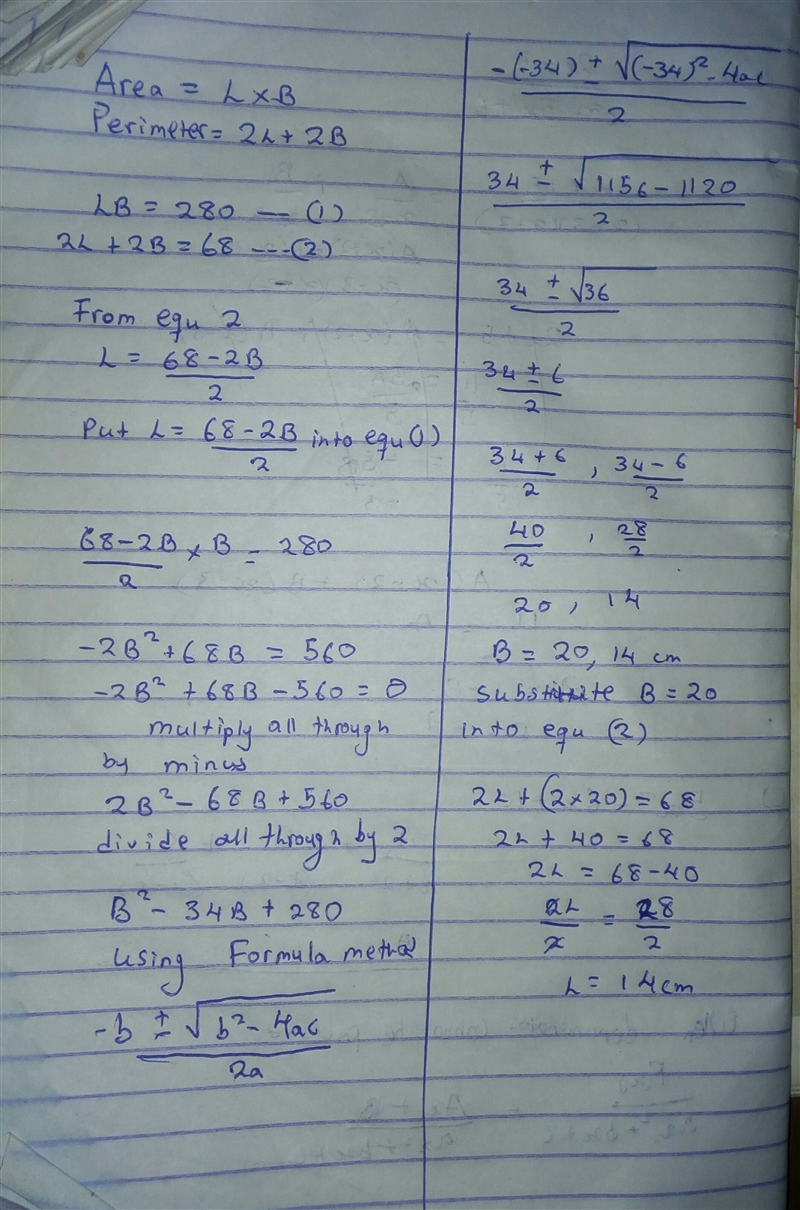 Area = L x B
Perimeter = 2L + 2B
LB = 280 — (1)
2L + 2B = 68 ---(2)
From equ 2
L = 68 - 2B
2
Put L = 68 - 2B into equ (1)
2
68 - 2B x B = 280
2
-2B² + 68B = 560
-2B² + 68B - 560 = 0
multiply all through
by minus
2B² - 68B + 560
divide all through by 2
B² - 34B + 280
using Formula method
-b ± √b² - 4ac
2a
-(-34) ± √(-34)² - 4ac
2
34 ± √1156 - 1120
2
34 ± √36
2
34 ± 6
2
34 + 6 , 34 - 6
2 2
40 , 28
2 2
20 , 14
B = 20, 14 cm
substitute B = 20
into equ (2)
2L + (2x20) = 68
2L + 40 = 68
2L = 68 - 40
2L = 28
2 2
L = 14cm